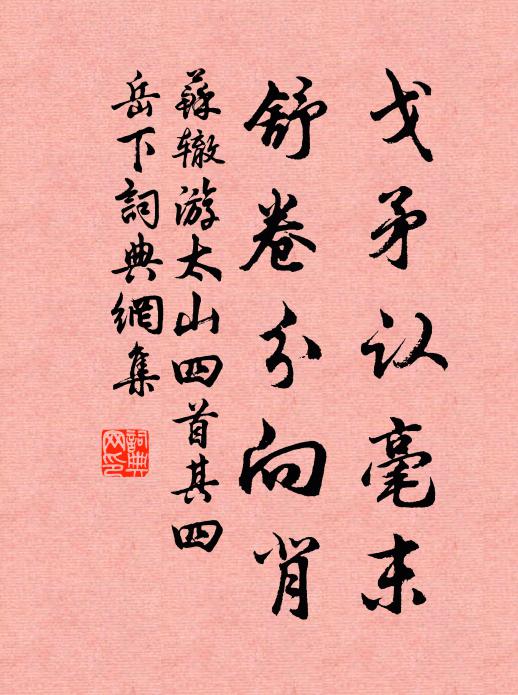 戈矛认毫末
舒卷分向背
蘇辙游太山四首其四
岳下詞典網集
詞典
网印